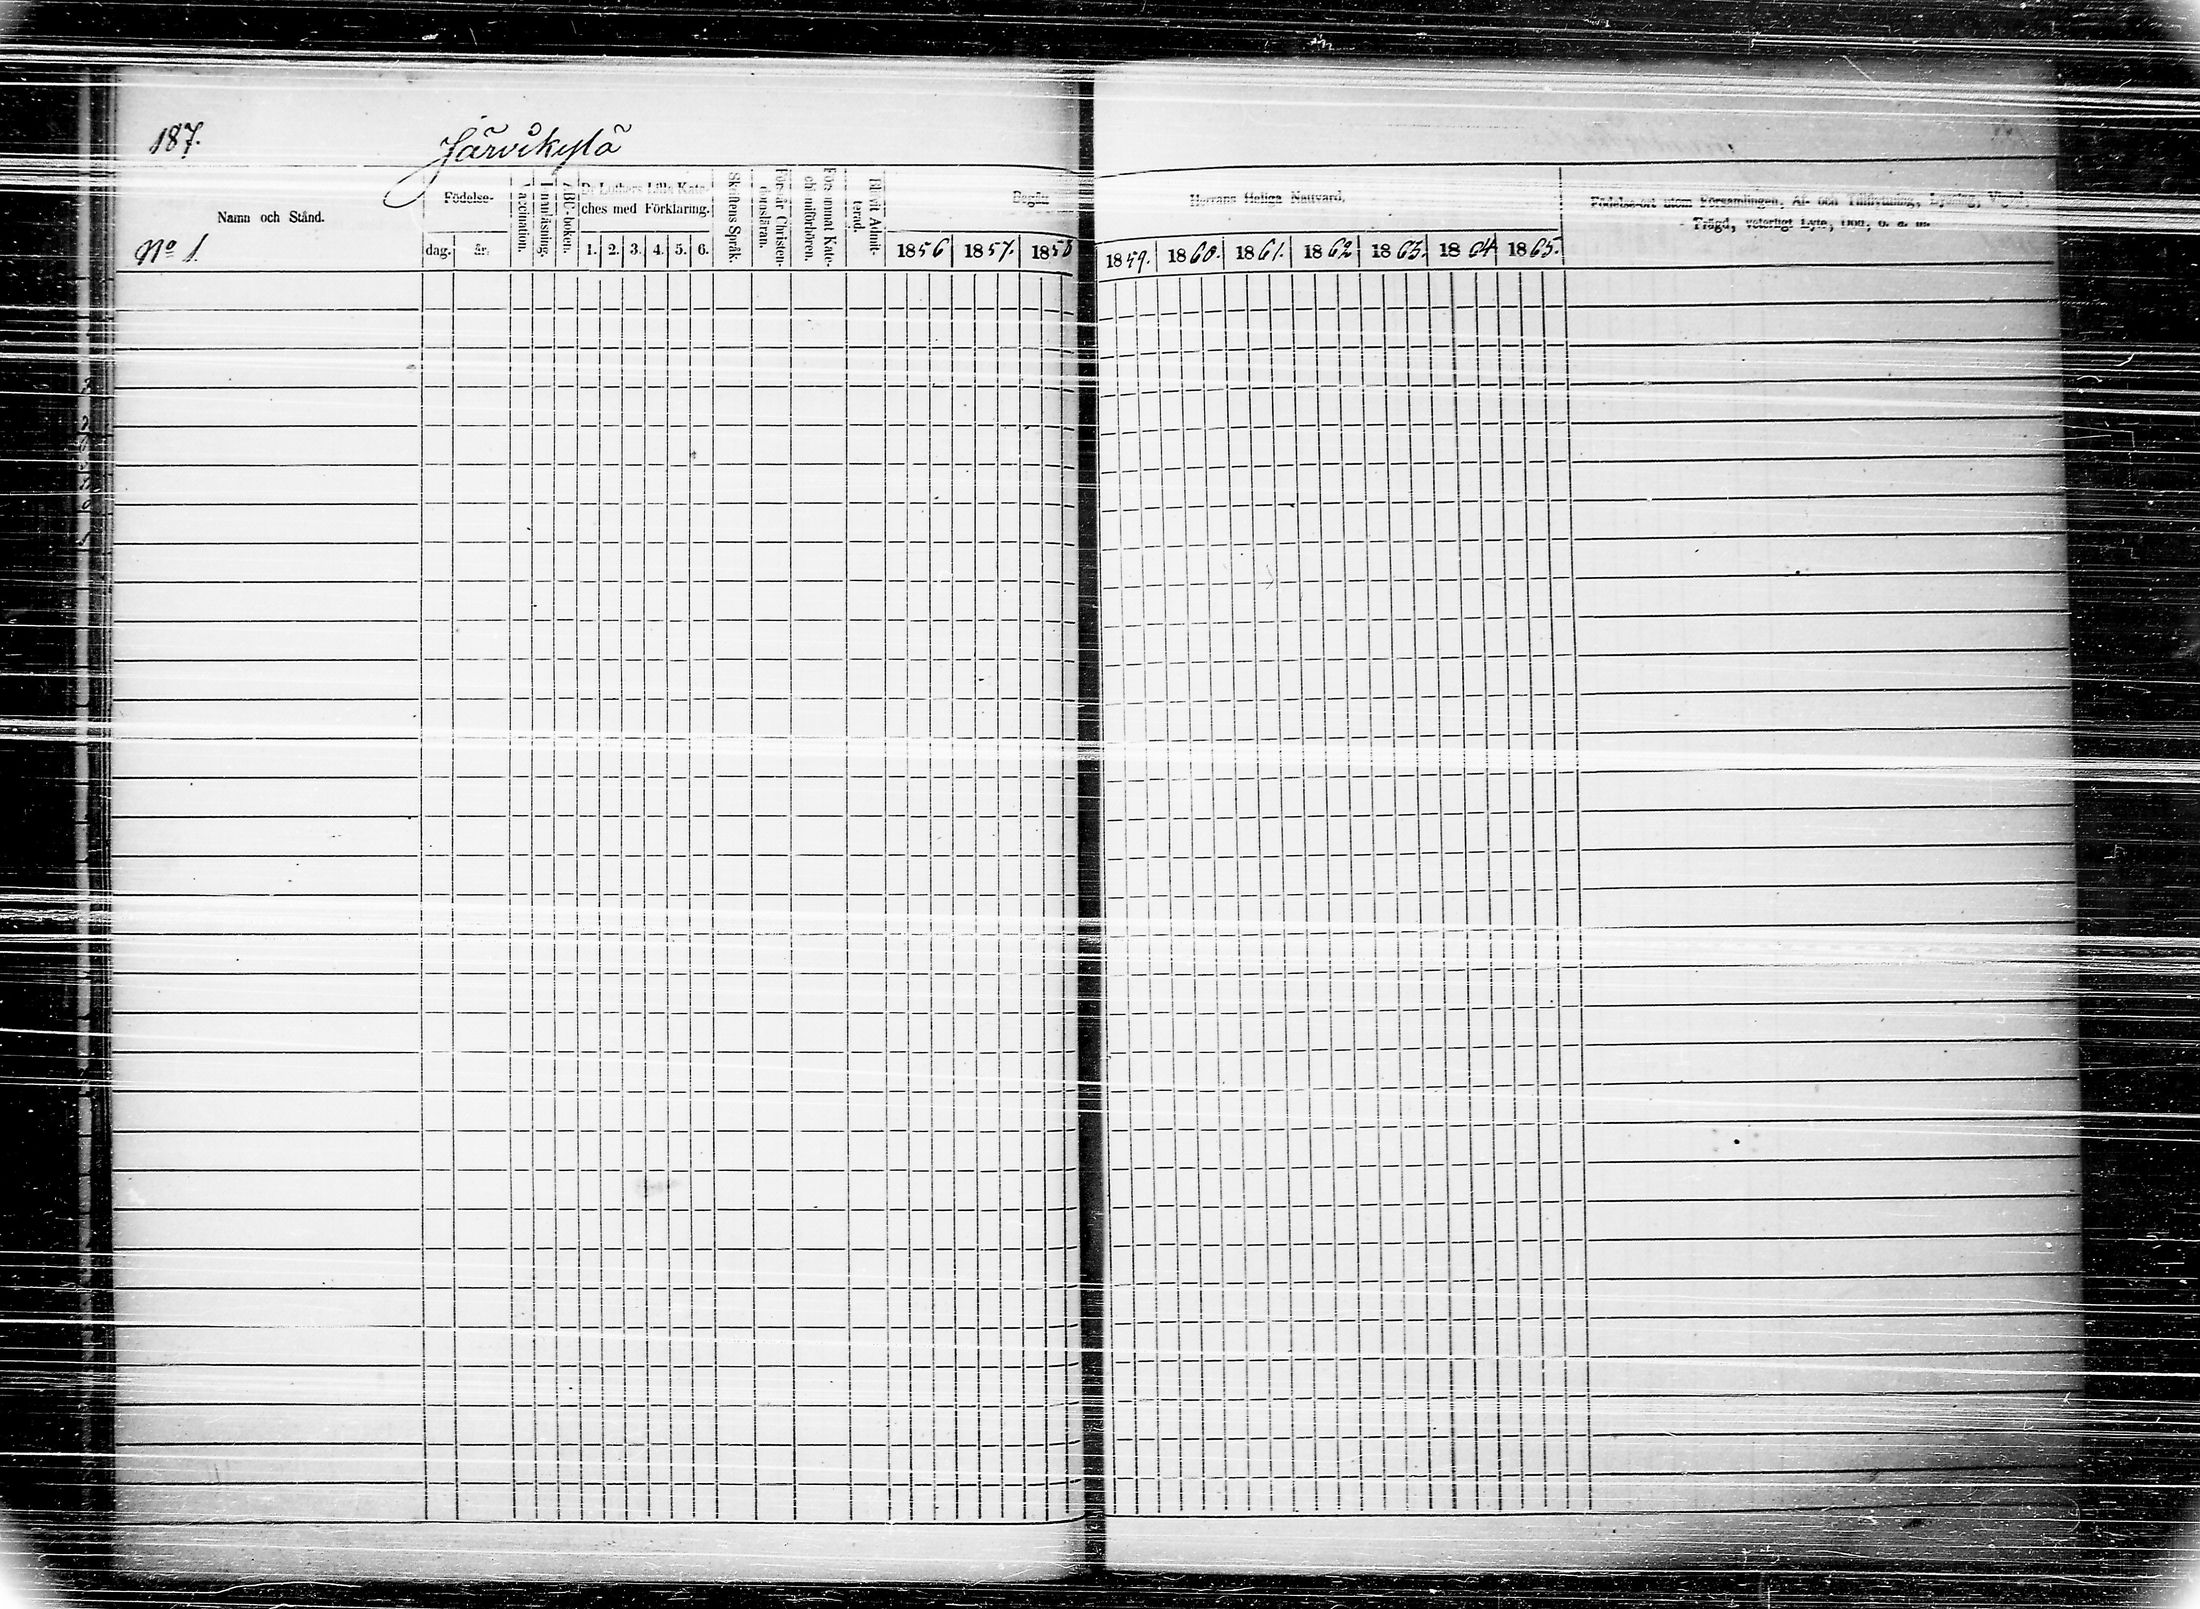 187.
Järvikylä
Namn och Stånd.
No 1
Födelse-
dag. år.
Vaccination.
Innanläsning.
ABC-boken.
Dr Luthers Lilla Kate-
ches med Förklaring.
1. 2. 3. 4. 5. 6.
Skriftens Språk.
Förstår Christen-
domsläran.
Försummat Kate-
chismiförhören.
Blifvit Admit-
terad.
Begått
1856 1857. 1858
Herrans Heliga Nattvard.
1859. 1860. 1861. 1862 1863. 1864 1865.
Födelse-ort utom Församlingen, Af- och Tillflyttning, Lysning, Vigsel,
Frägd, veterligt Lyte, Död, o. s. m.